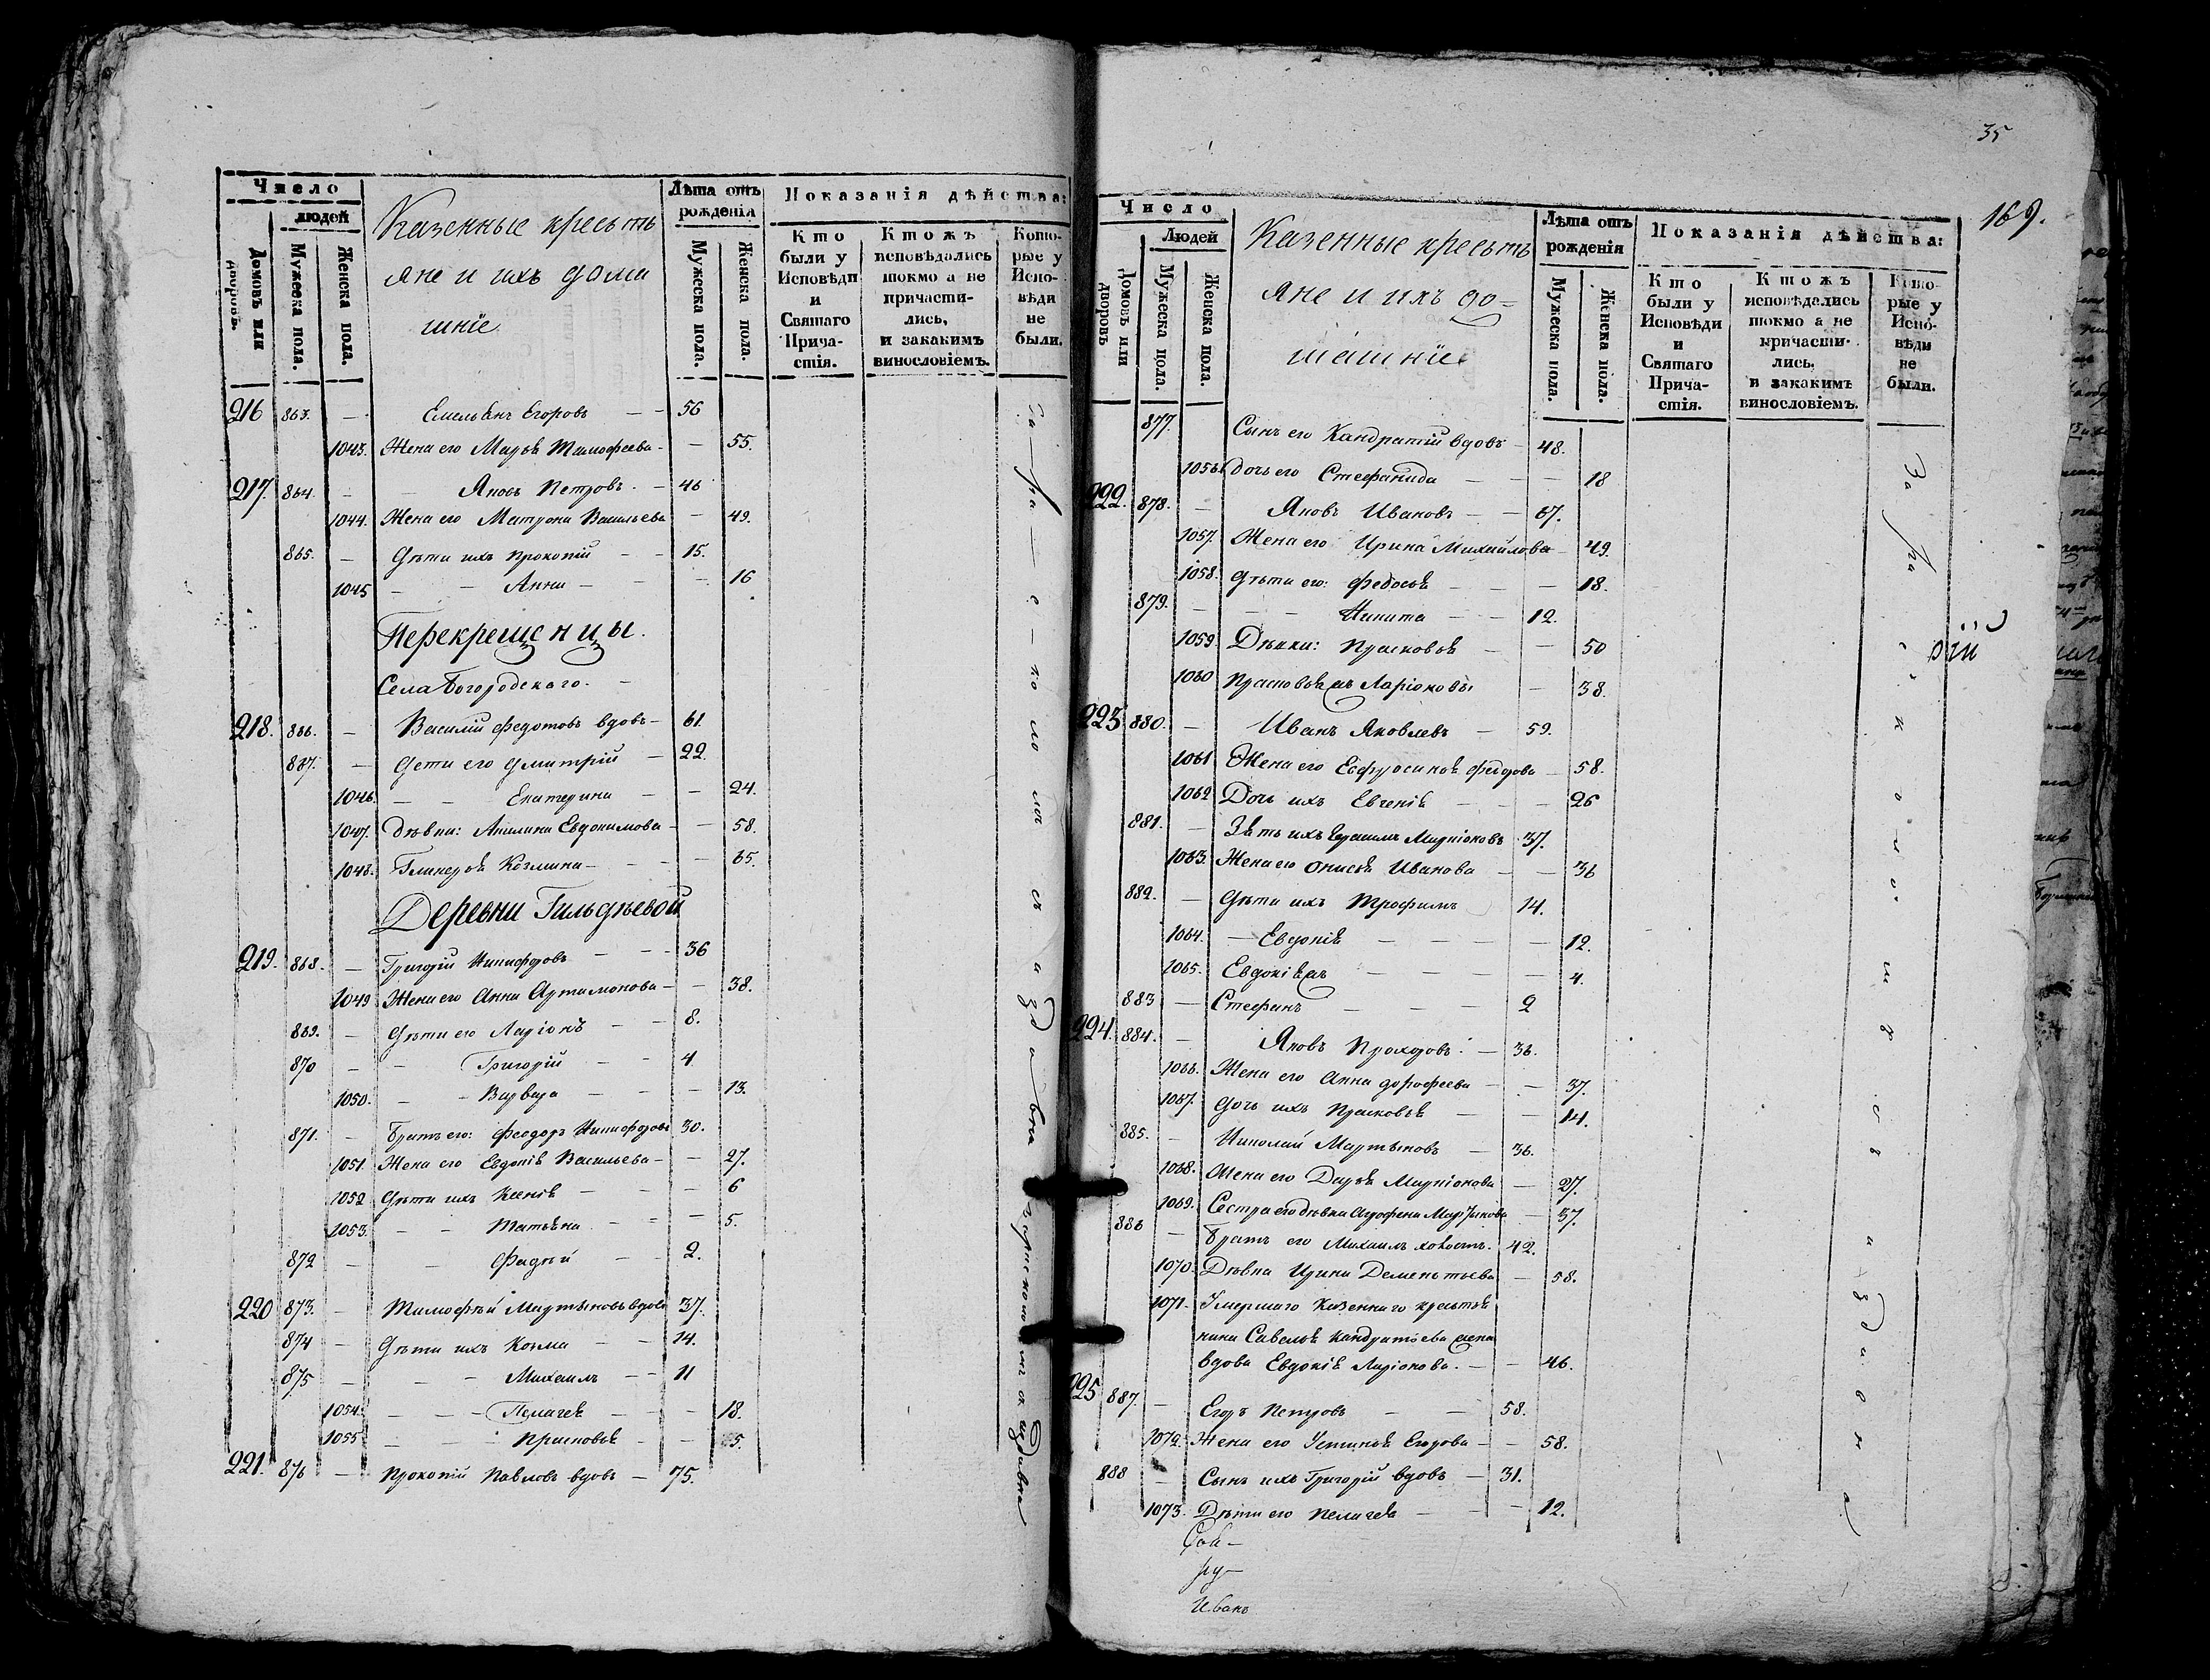 Число
людей
Домовъ или дворовъ.
Мужеска пола.
Женска пола.
Казенные кресьтъ
яне и ихъ дома
шніе
Лѣта отъ рожденія
Мужеска пола.
Женска пола.
Показанія дѣйства:
Кто были у Исповѣди и Святаго Прича-стія.
Ктожъ исповѣдались токмо а не причасти-лись, и закакимъ винословіемъ.
Кото-рые у Испо-вѣди не были.
216 863. — Емельянъ Егоровъ — — 56
1043. Жена его Марья Тимофеева — — 55.
217. 864. — — Яковъ Петровъ — 46
1044. Жена его Матрона Васильева — 49.
865. — Дѣти ихъ Прокопій — — 15.
1045 — — Анна — — — 16
Перекрещенцы.
Села Богородскаго. —
218. 866. — Василій Федотовъ вдовъ — 61.
867. — Дети его Дмитрій — 22.
1046. — — Екатерина — — 24.
1047. Дѣвки: Акилина Евдокимова — — 58.
1048. Козмина — — — 65.
Деревни Гильдѣевой
219. 868. — Григорій Никифоровъ — — 36
1049 Жена его Анна Артамонова — — 38.
869. — Дѣти его Ларіонъ — — 8.
870 — — Григорій — — 4
1050. — — Варвара — — — 13.
871. — Братъ его: Феодоръ Никифоровъ 30.
1051. Жена его Евдокія Васильева — — 27.
1052 Дѣти ихъ Ксенія — — — 6
1053. — — Татьяна — — — 5.
872 — — Фадѣй — — 2.
220 873. — Тимофѣй Мартыновъ вдовъ 37.
874 — Дѣти ихъ Козма — — 14.
875 — — — Михаилъ — — 11
1054. — — — Пелагея — — — 18.
1055 — — — Прасковья — — 5.
221. 876 — Прокопій Павловъ вдовъ — 75.
За рас коломъ съ издавна
35
169.
Число
Людей
Домовъ или дворовъ
Мужеска пола.
Женска пола.
Казенные кресьтъ
яне и ихъ до=
машніе
Лѣта отъ рожденія
Мужеска пола.
Женска пола.
Показанія дѣйства:
Кто были у Исповѣди и Святаго Прича-стія.
Ктожъ исповѣдались токмо а не причасти-лись, и закакимъ винословіемъ.
Кото-рые у Испо-вѣди не были.
877. Сынъ его Кандратій вдовъ — 48.
1056. дочь его Стефанида — — — 18
222. 878. — Яковъ Ивановъ — — 67.
1057. Жена его Ирина Михайлова — 49.
1058. Дѣти его: Федосья — — — 18.
879. — — — Никита — — 12.
1059. Дѣвки: Прасковья — — 50
1060 Прасковья Ларіоновы — 38.
223 880. — Иванъ Яковлевъ — 59.
1061 Жена его Евфросинія Федорова — 58.
1062 Дочь ихъ Евгенія — — — 26
881. — Зять ихъ Герасимъ 37.
1063. Жена его Онисья Иванова — — 36
882. — Дѣти ихъ Трофимъ 14.
1064. — Евдокія — — — — 12.
1065. Евдокія — — — — 4.
883 — Стефанъ — — — 2
224. 884. — Яковъ Прохоровъ — 36.
1066. Жена его Анна дорофеева — — 37.
1067. Дочь ихъ Прасковья — — 14.
885. — Николай Мартыновъ — 36.
1068. Жена его Дарья — 27.
1069. Сестра его дѣвка Агрофена Мартынова — 37.
886 — Братъ его Михаилъ холостъ. 42.
1070. Дѣвка Ирина Дементьева — 58.
1071. Умершаго казеннаго кресьтя
нина Савелья Кандратьева жена
вдова Евдокія Ларіонова. — — 46.
225 887. — Егоръ Петровъ — — 58.
1072. Жена его Устинья Егорова — — 58.
888 — Сынъ ихъ Григорій вдовъ — 31.
1073. Дѣти его Пелагея — — — 12.
За рас коломъ съ издавна
рій
Иванъ